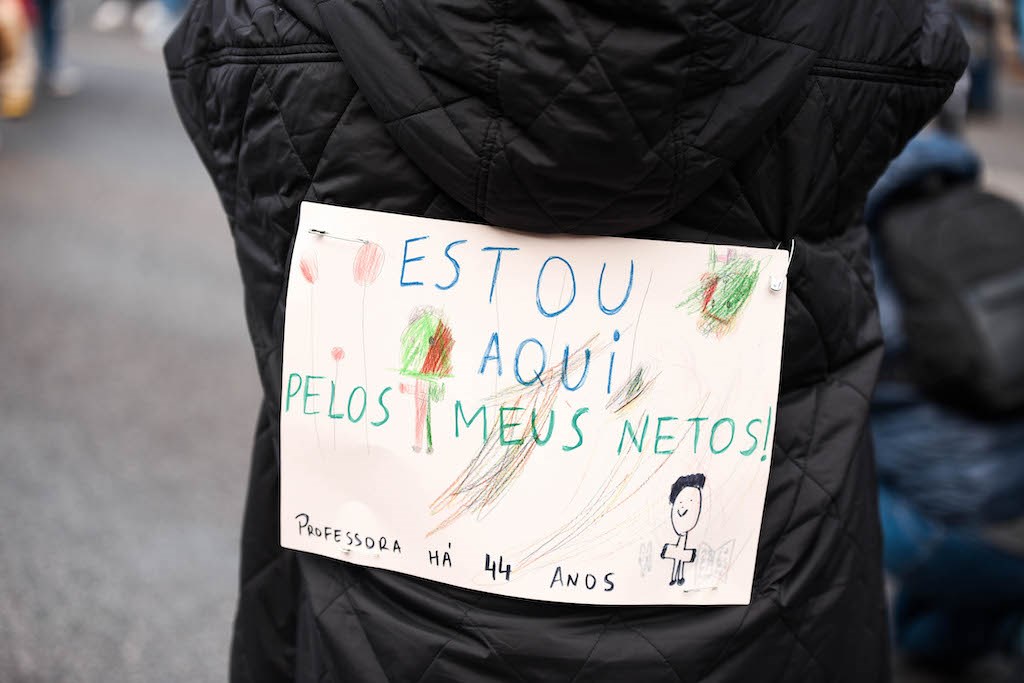 ESTOU
AQUi
PELOS MEUS NETOS!
PROFESSORA HÁ 44 ANOS